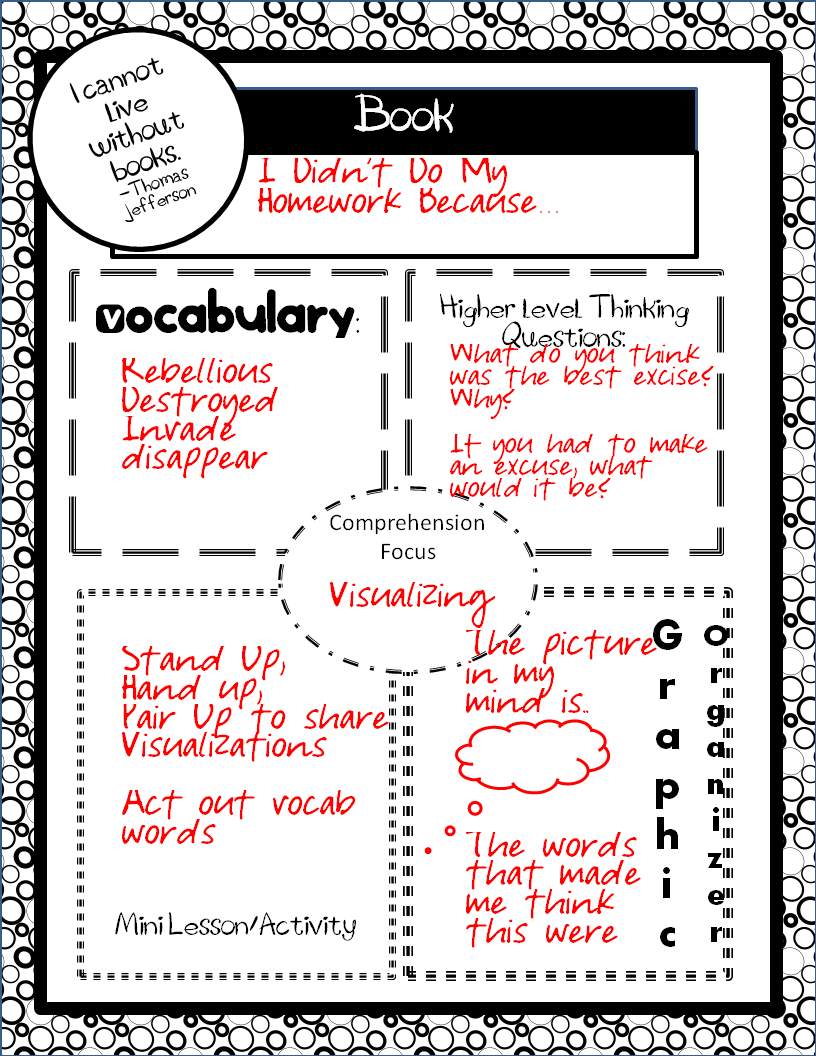 I cannot
live
without
books.
-Thomas
Jefferson
Book
I Didn't Do My
Homework Because...
Vocabulary:
Rebellious
Destroyed
Invade
disappear
Higher Level Thinking
Questions:
What do you think
was the best excise?
Why?
If you had to make
an excuse, what
would it be?
Comprehension
Focus
Visualizing
Stand Up,
Hand up,
Pair Up to share
Visualizations
Act out vocab
words
Mini Lesson/Activity
The picture
in my
mind is..
The words
that made
me think
this were
Graphic
Organizer